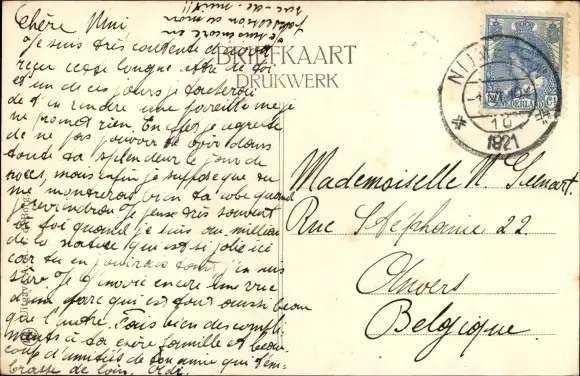 Chère Mimi
Je suis très contente d'avoir
reçu cette longue lettre de toi
et un de ces jours je tacherai
de t'en rendre une pareille mais je
ne promet rien. En effet je regrette
de ne pas pouvoir te voir dans
toute ta splendeur le jour de
noces, mais enfin je suppose que tu
me montreras bien ta robe quand
je reviendrai. Je pense très souvent
à toi quand je suis au milieu
de la nature qui est si jolie ici
car tu en jouirais tant, j'en suis
sûre. Je t'envoie encore une vue
d'un parc qui est tout aussi beau
que l'autre. Fais bien des compli-
ments à ta chère famille et beau-
coup d'amitiés de ton amie qui t'em-
brasse de loin.
BRIEFKAART
DRUKWERK
NIJM
1921
NEDERLAND
Mademoiselle M.
Rue Stéphanie 22
Anvers
Belgique.